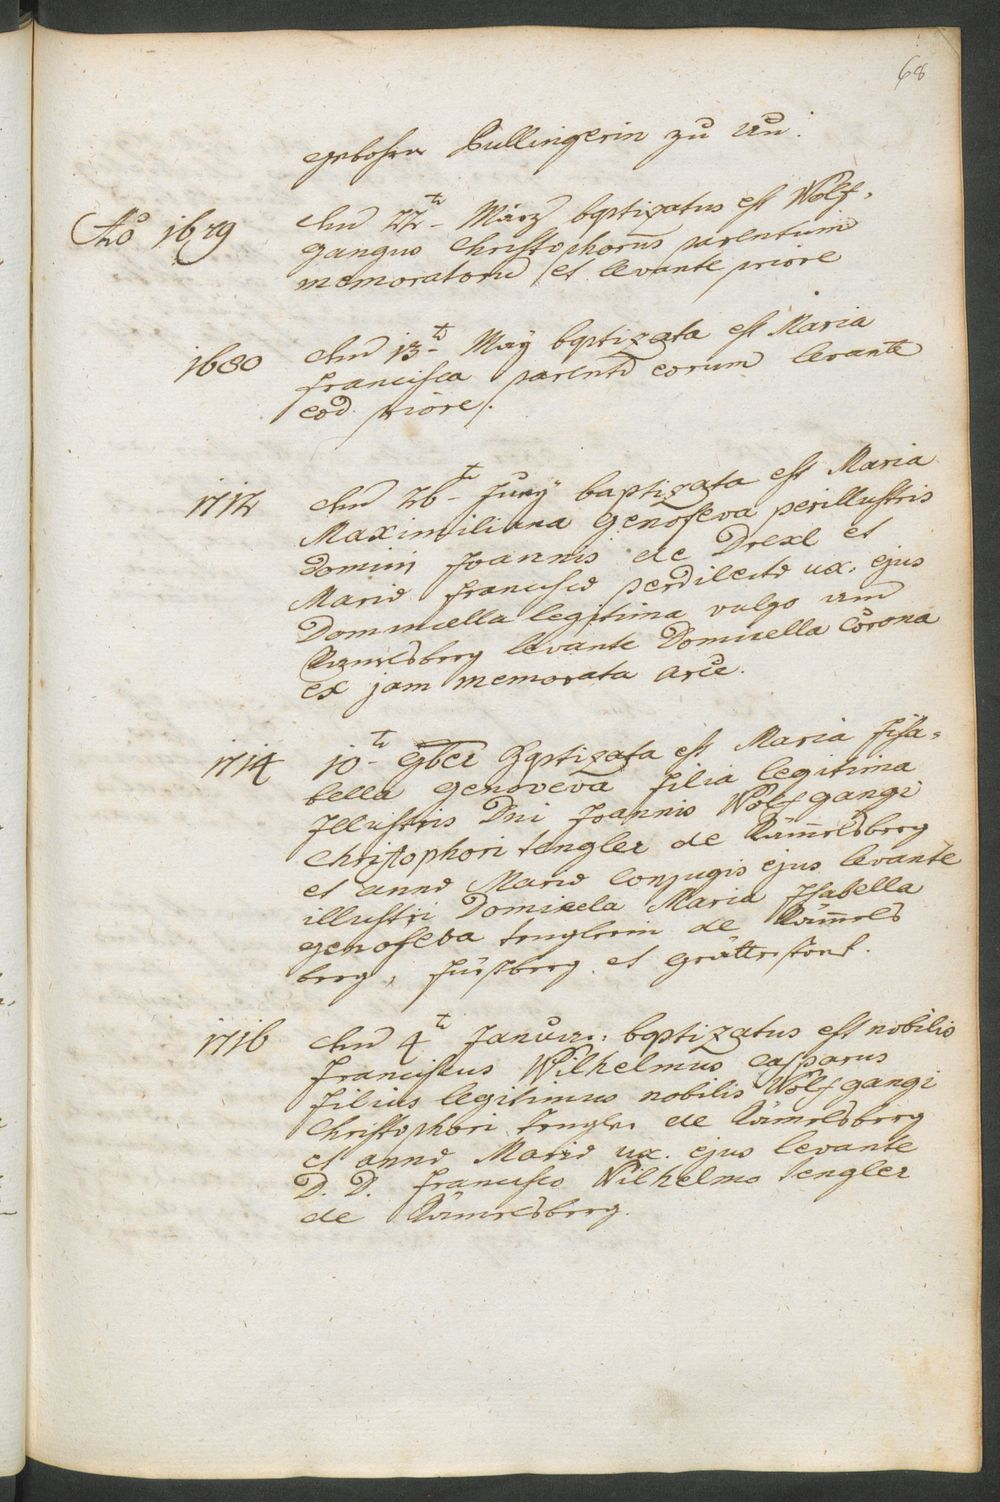 68
gebohrn Pullingerin zu
Ao 1679 den 22ten März bqptizatus est Wolf„
gangus Christophorus parentum
memoratorum et levante priore
1680 den 13t May bqptizata est Maria
Francisca parentum eorum levante
eod. priore.
1712 den 26t Juny baptizata est Maria
Maximiliana Genofeva perillustris
Domini Joannis de Drexl et
Mariæ Francisce perdilectæ ux. ejus
Domincella legitima vulgo
levante Domicella Corona
ex jam memorata arce.
1714 10t bqptizata est Maria Jsa„
bella Genoveva filia legitima
Jllustris Dni Joannis Wolfgangi
Christophori tengler de Rämelsberg
et annæ Mariæ Conjugis ejus levante
illustri Domicela Maria Jsabella
genofeva tenglerin de Rämels
berg, et
1716 den 4t Januar: bqptizatus est nobilis
Franciscus Wilhelmus casparus
filius legitimus nobilis Wolfgangi
Christophori tengler de Rämelsberg
et annæ Mariæ ux. ejus levante
D. D. Francisco Wilhelmo tengler
de Rämelsberg.